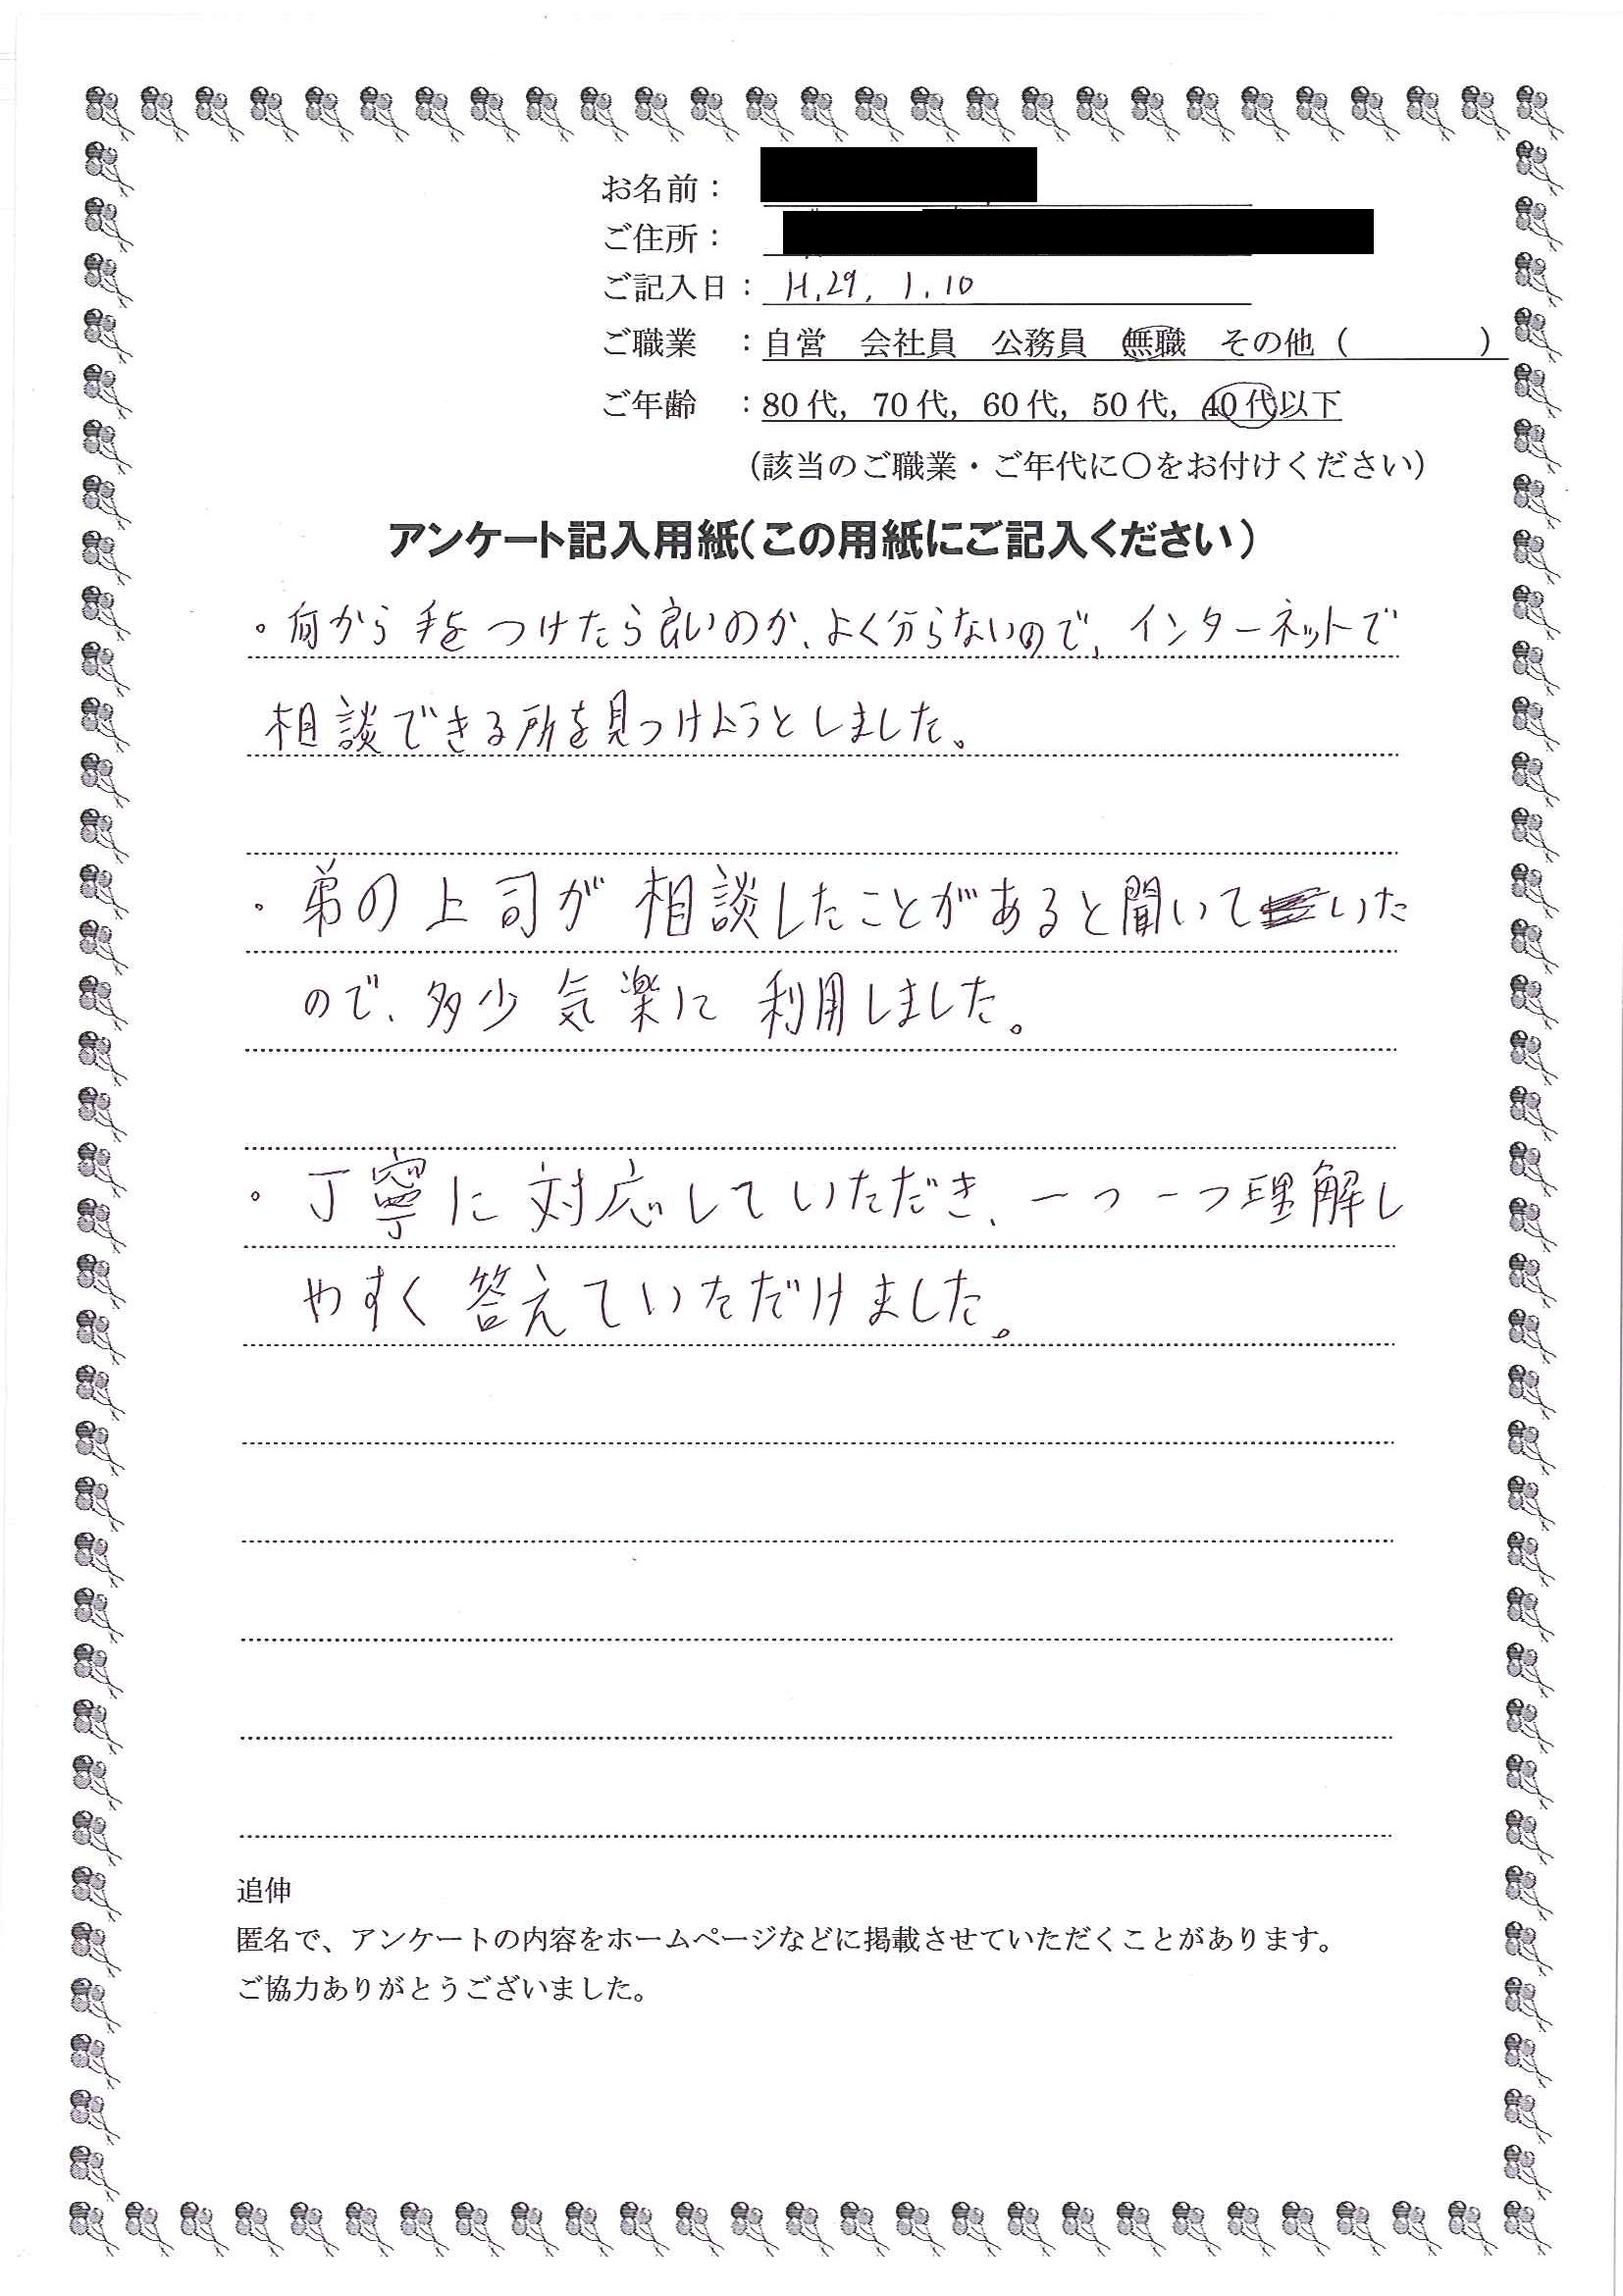 お名前：
ご住所：
ご記入日：H.29. 1. 10
ご職業　：自営　会社員　公務員　無職　その他（　　　　）
ご年齢　：80代，70代，60代，50代，40代以下
（該当のご職業・ご年代に〇をお付けください）
アンケート記入用紙（この用紙にご記入ください）
。何から手をつけたら良いのか、よく分らないので、インターネットで
相談できる所を見つけようとしました。
・弟の上司が相談したことがあると聞いていた
ので、多少気楽に利用しました。
。丁寧に対応していただき、一つ一つ理解し
やすく答えていただけました。
追伸
匿名で、アンケートの内容をホームページなどに掲載させていただくことがあります。
ご協力ありがとうございました。